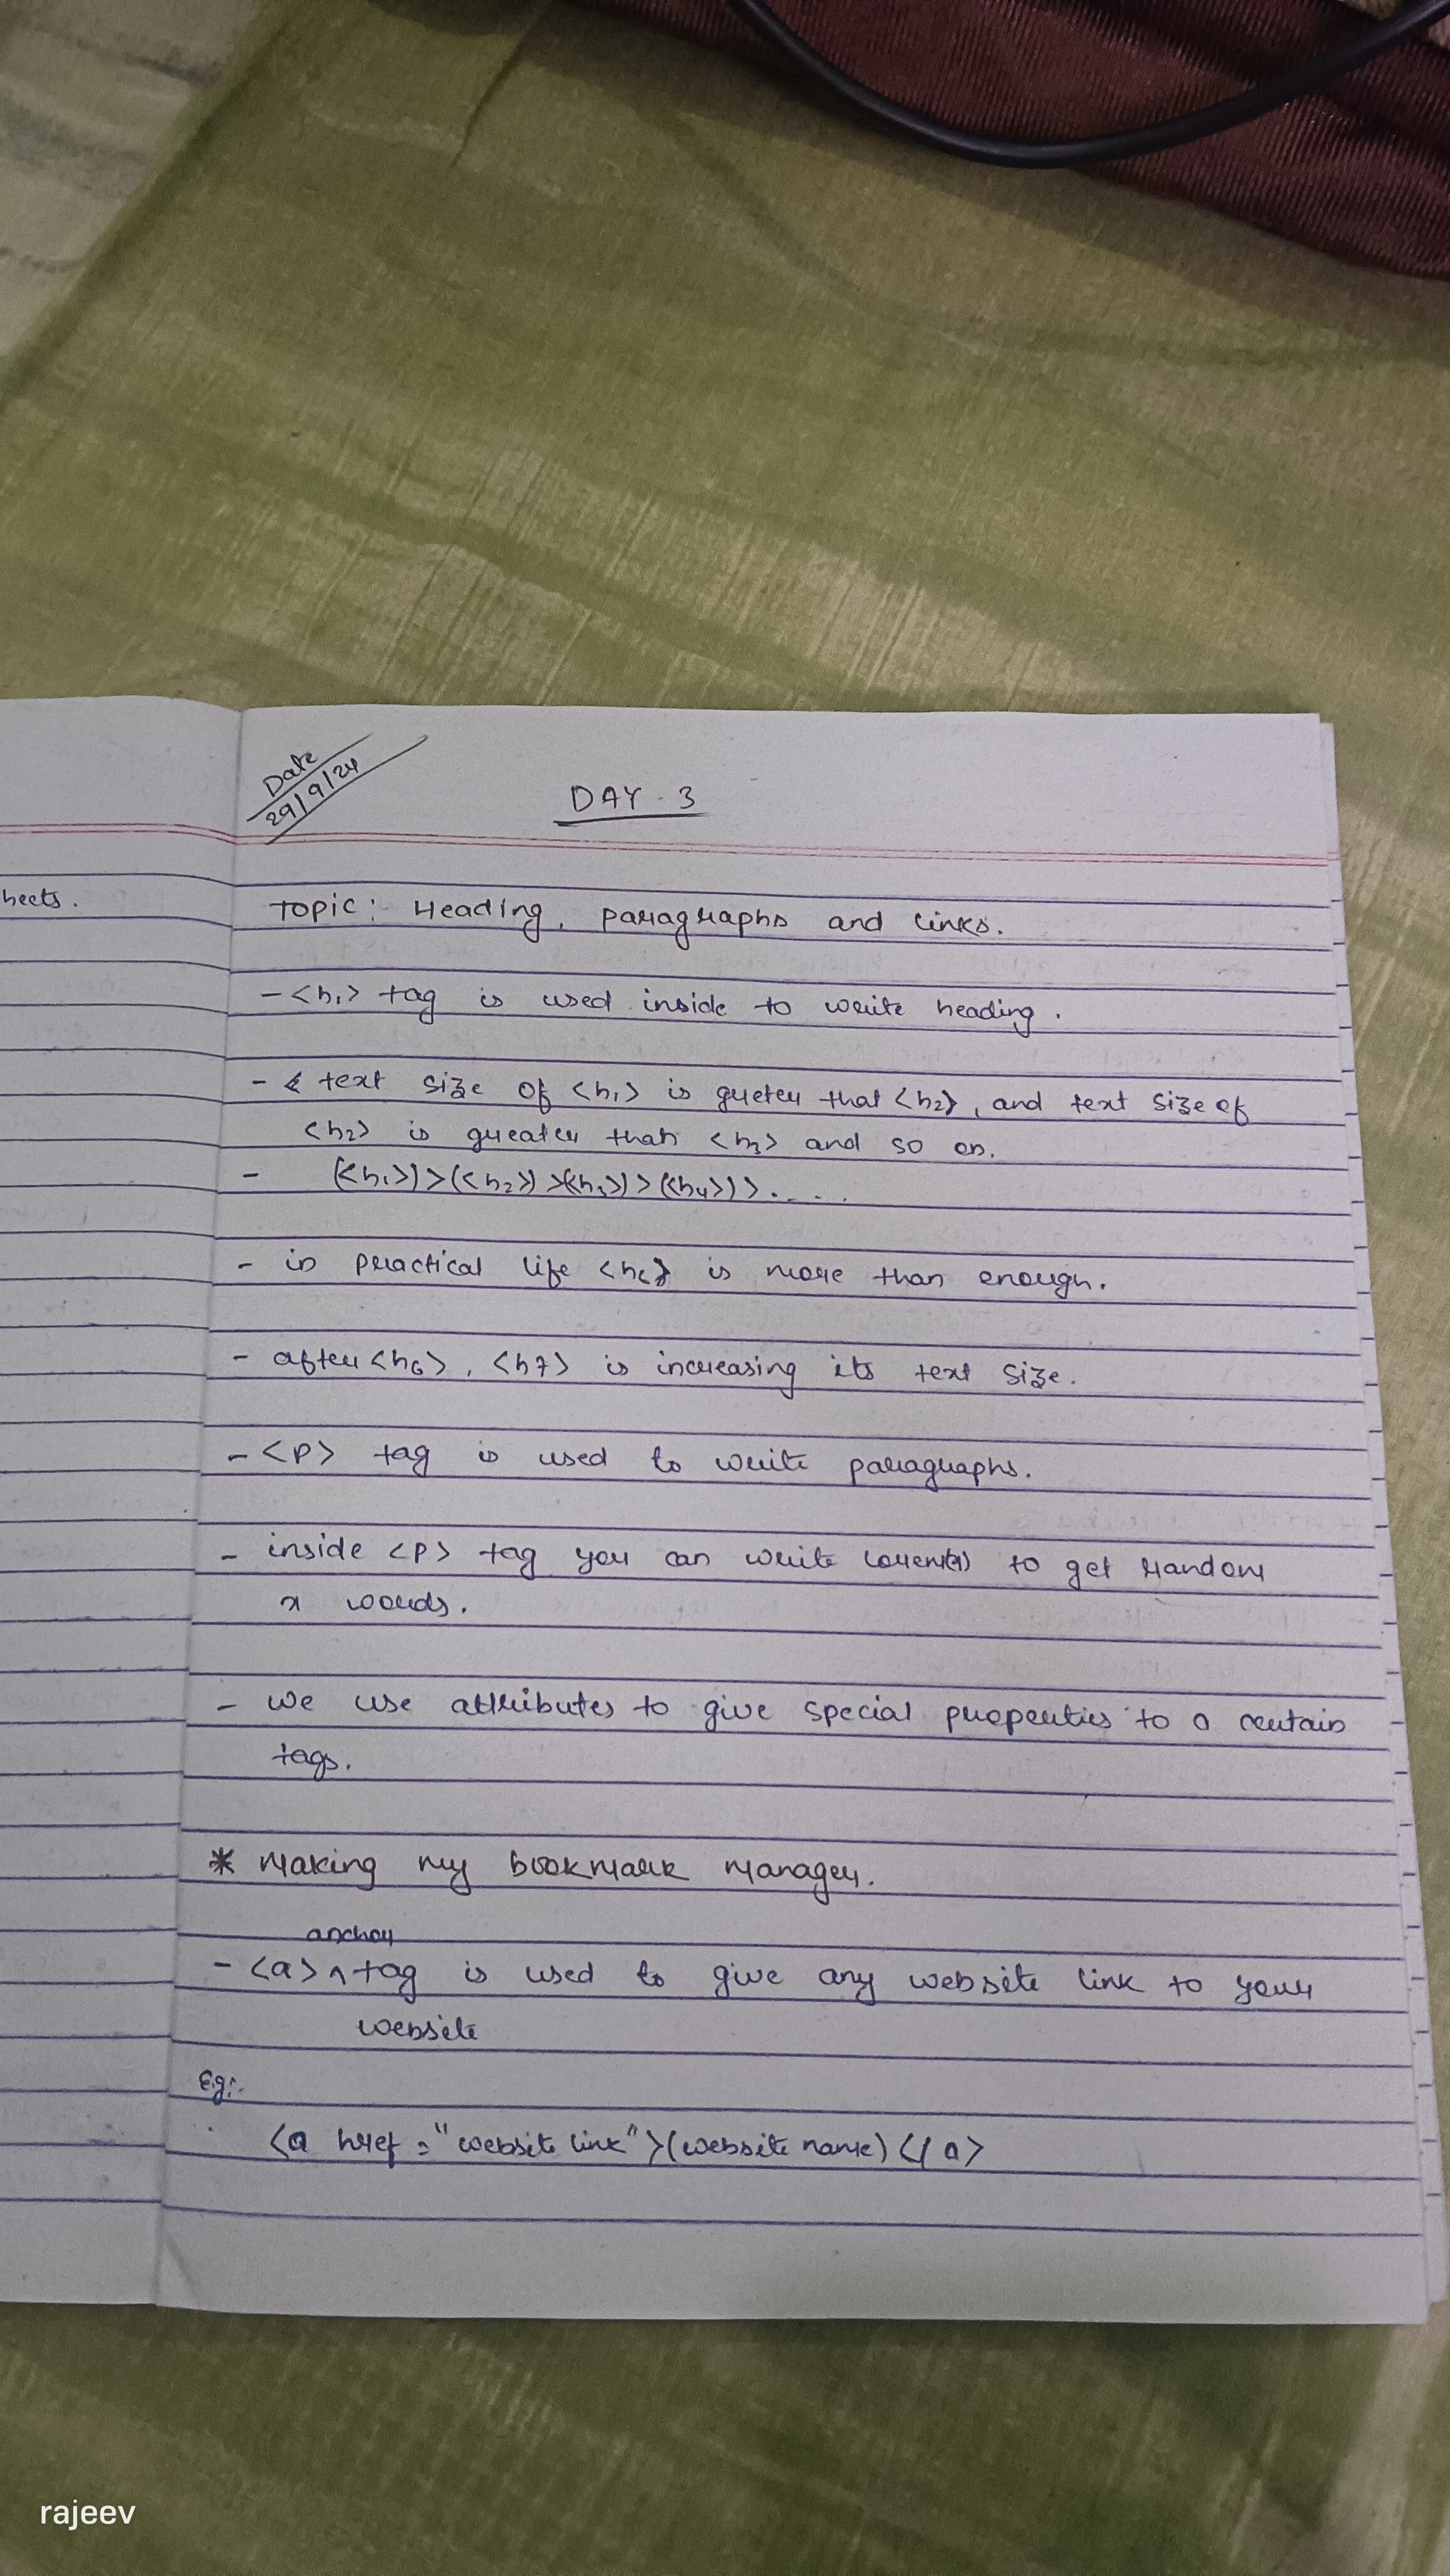 Date
29/9/24
DAY - 3
heets.
Topic: Heading, paragraphs and links.
- <h1> tag is used inside to write heading.
- text size of <h1> is greter that <h2>, and text size of
<h2> is greater than <h3> and so on.
- (<h1>)>(<h2>)>(<h3>)>(<h4>)>.....
- in practical life <h6> is more than enough.
- after <h6>, <h7> is increasing its text size.
- <p> tag is used to write paragraphs.
- inside <p> tag you can write to get random
x words.
- we use attributes to give special properties to a certain
tags.
* Making my bookmark manager.
anchor
- <a> ^ tag is used to give any website link to your
website
Eg:-
<a href = "website link">(website name)</a>
rajeev